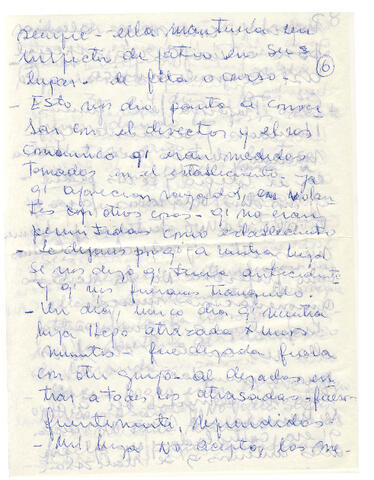 siempre - ella mantenía un
inspector de patio en sus
lugar - de fila o curso -
6
- Esto nos dio punto de conver
sar con el director y el nos
comunico qi eran medidas
tomadas en el establecimiento - ya
qi aparecian rayados, en volan
tes con otras cosas - qi no eran
permitidas como establecimiento
- Le dijimos por qi a nuestra hija
Se nos dijo qi tenia antecedente
y qi nos fueramos tranquilo.
- Un día, unico día qi nuestra
hija llegó atrazada unos
minutos - fue dejada fuera
con otro grupo - al dejarlos en
trar a todos los atrasados - fueron
fuertemente, reprendidos -
- Mi hija no acepto, los me-